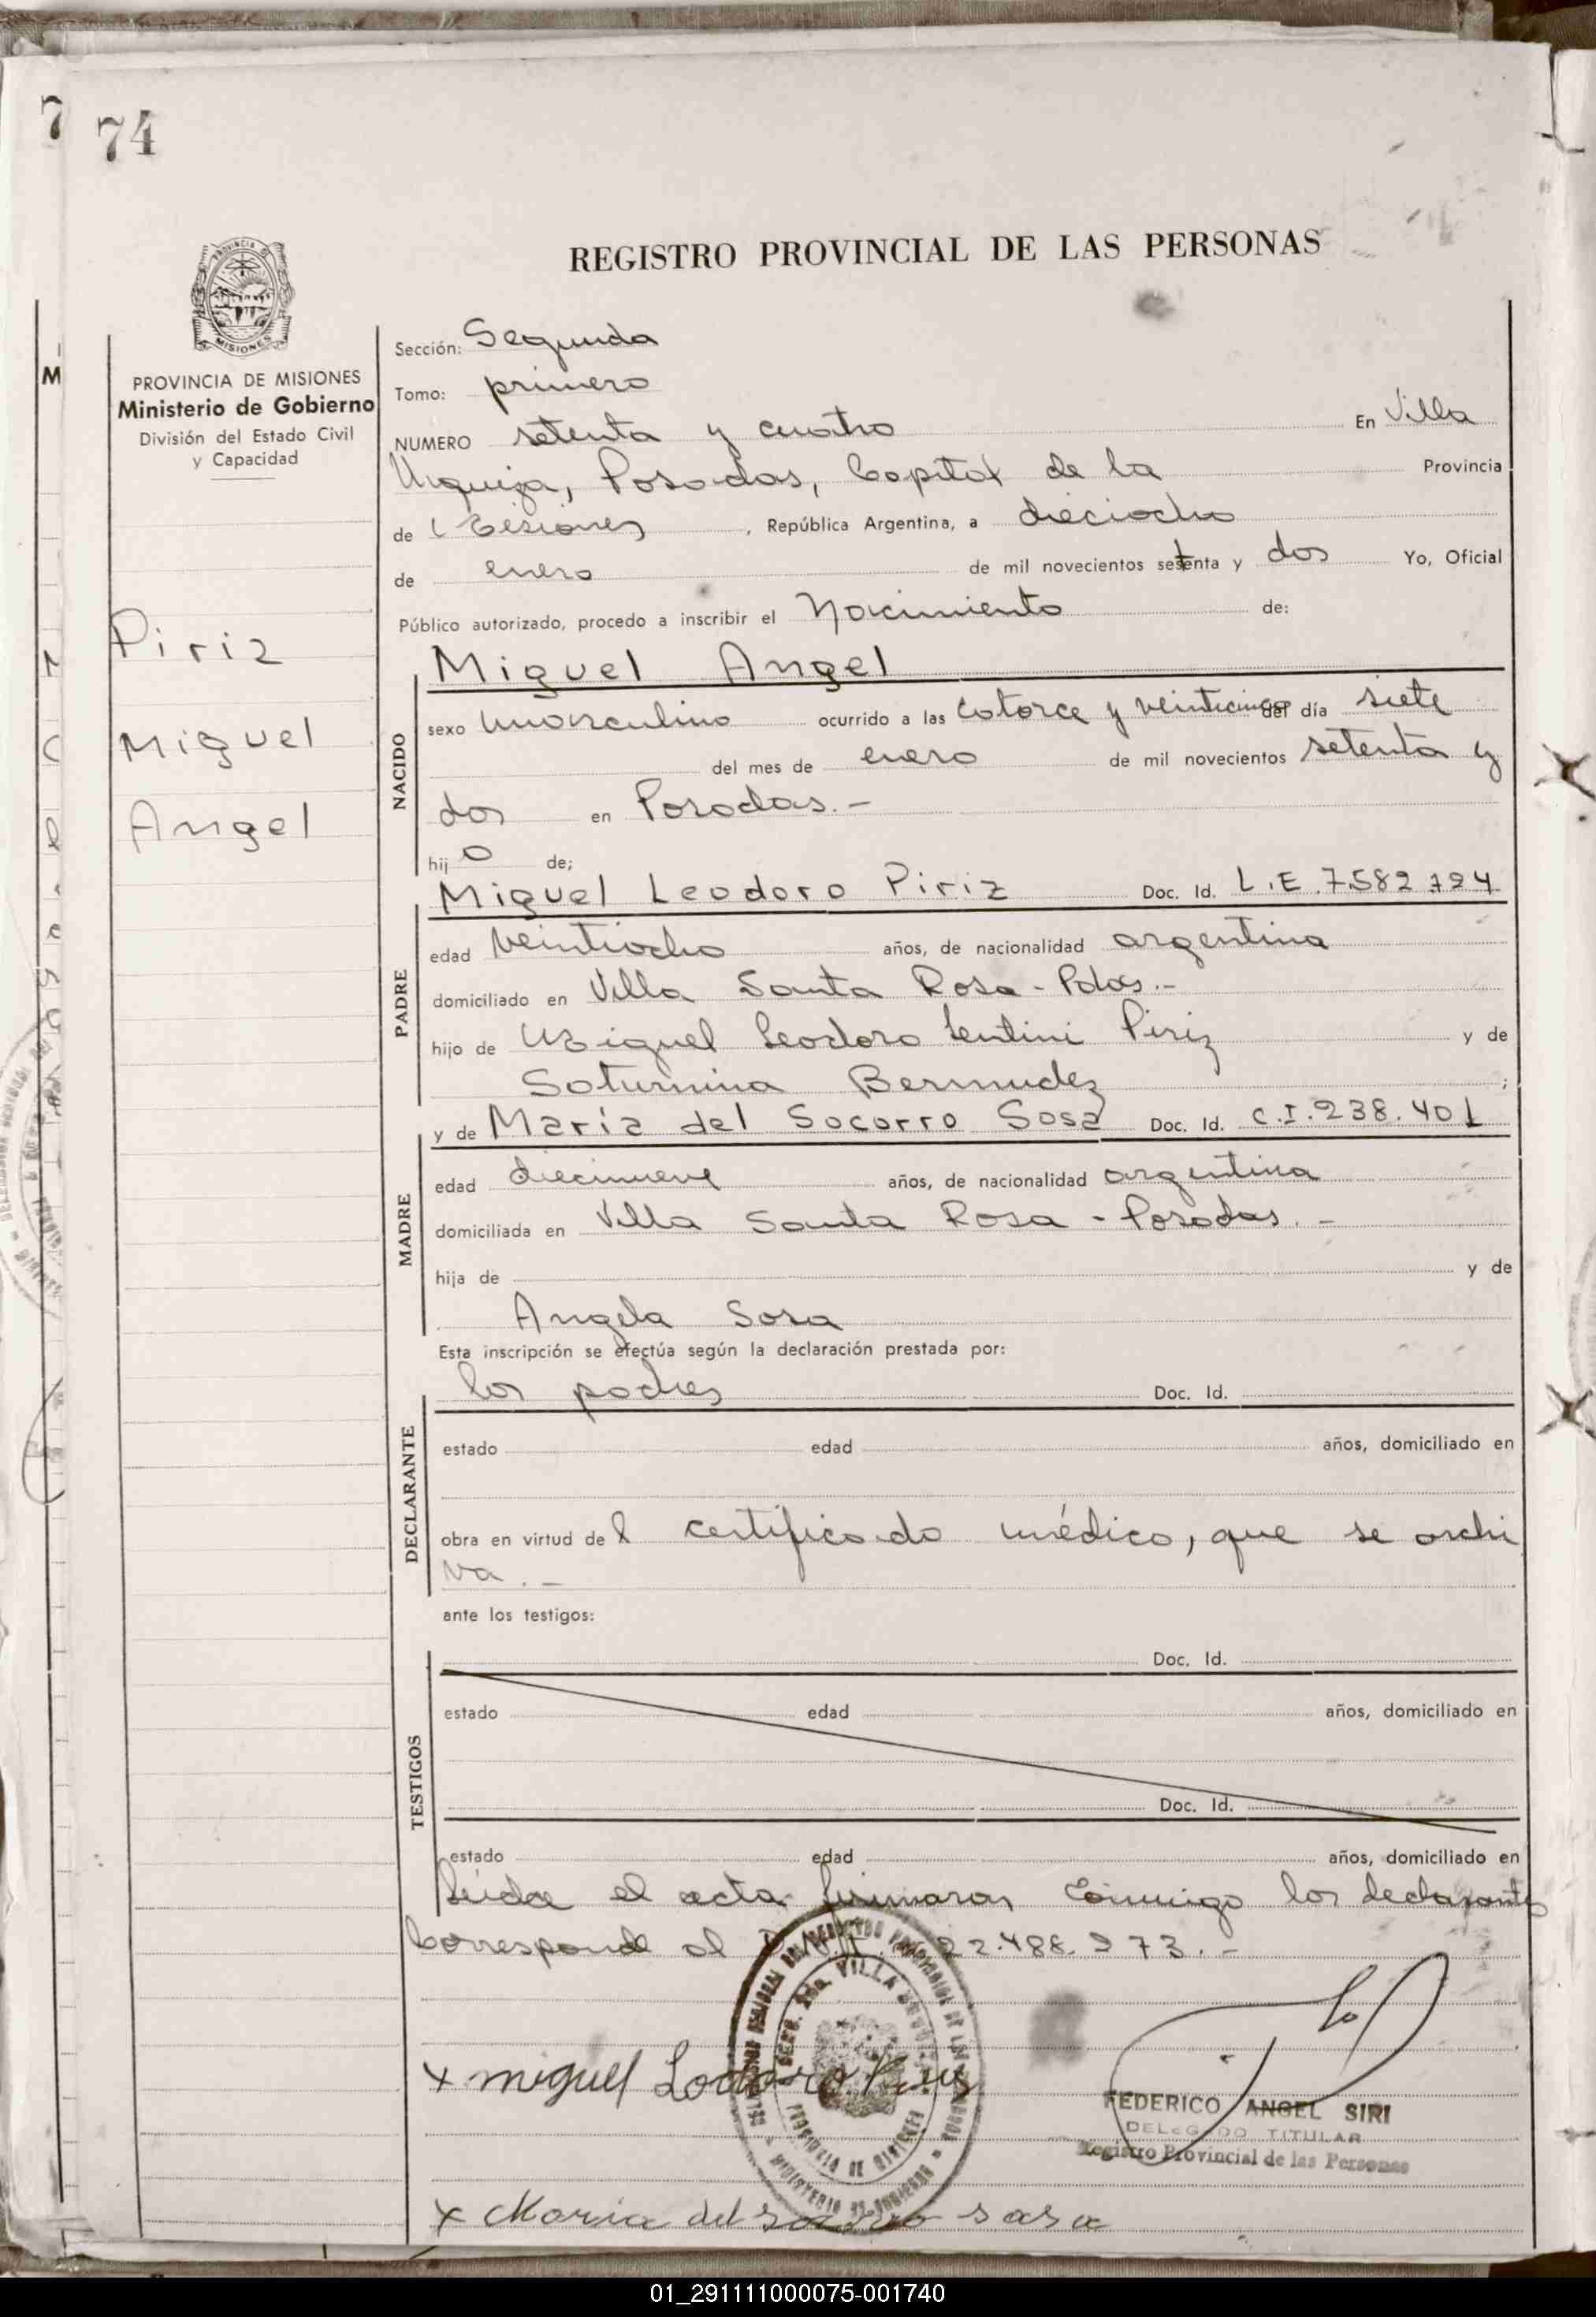 74
REGISTRO PROVINCIAL DE LAS PERSONAS
PROVINCIA DE MISIONES
Ministerio de Gobierno
División del Estado Civil
y Capacidad
Piriz
Miguel
Angel
Sección: Segunda
Tomo: primero
NUMERO setenta y cuatro En Villa
Urquiza, Posadas, Capital de la Provincia
de Misiones, República Argentina, a dieciocho
de enero de mil novecientos setenta y dos Yo, Oficial
Público autorizado, procedo a inscribir el Nacimiento de:
NACIDO
Miguel Angel
sexo masculino ocurrido a las catorce y veinticinco del día siete
del mes de enero de mil novecientos setenta y
dos en Posadas.-
hijo de;
PADRE
Miguel Leodoro Piriz Doc. Id. L.E 7.582.724
edad veintiocho años, de nacionalidad argentina
domiciliado en Villa Santa Rosa - Pdas.-
hijo de Miguel Leodoro Lentini Piriz y de
Saturnina Bermudez;
MADRE
y de María del Socorro Sosa Doc. Id. C.I. 238.401
edad diecinueve años, de nacionalidad argentina
domiciliada en Villa Santa Rosa - Posadas.-
hija de y de
Angela Sosa
Esta inscripción se efectúa según la declaración prestada por:
DECLARANTE
los padres Doc. Id.
estado edad años, domiciliado en
obra en virtud del certificado médico, que se archi
va.-
ante los testigos:
TESTIGOS
Doc. Id.
estado edad años, domiciliado en
Doc. Id.
estado edad años, domiciliado en
Leída el acta firmaron conmigo los declarantes
Corresponde al 22.488.973.-
x miguel Lodoro Piris
FEDERICO ANGEL SIRI
DELEGADO TITULAR
Registro Provincial de las Personas
x Maria del Socorro sosa
01_291111000075-001740